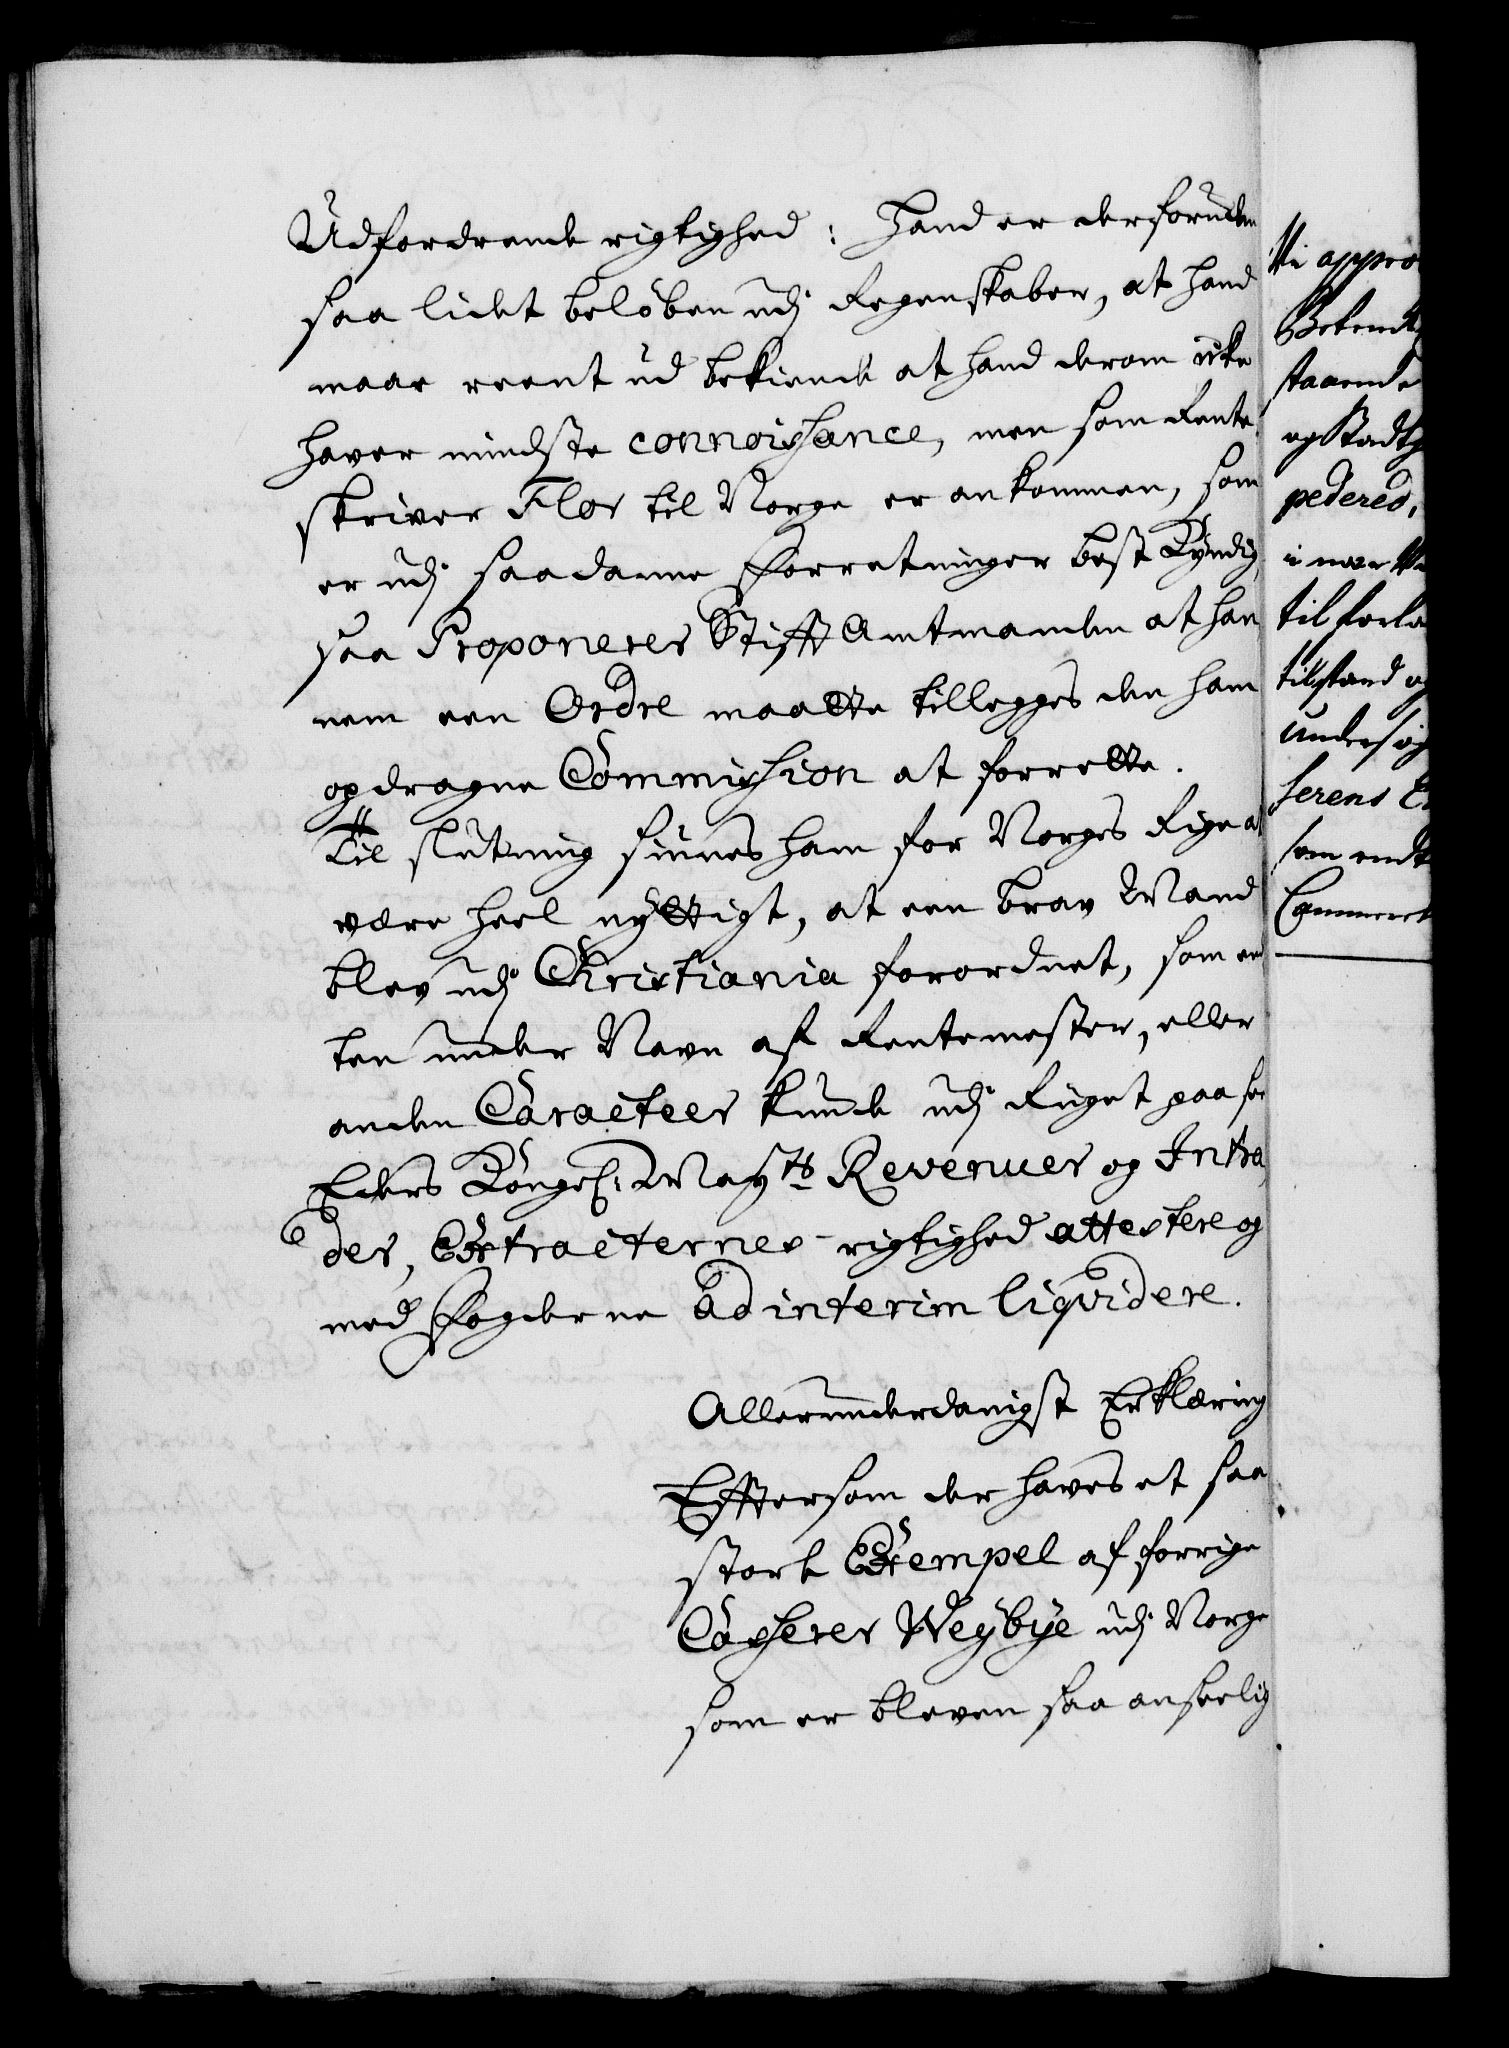 Udfordrende rigtighed: Hand er derforuden
saa lidet beløben udj Regenskaber, at hand
maae reent ud bekiende at hand derom icke
haver mindste connoishance, men som Rente-
skriver Flor til Norge er ankommen, som
er udj saadanne Forretninger best Kyndig,
saa Proponerer StifftAmtmanden at han
nem een Ordre maatte tillegges den ham
opdragne Commishion at forrette.
Til slutning siunes ham for Norges Rige at
være heel nyttigt, at een brav Mand
blev udj Christiania forordnet, som en
ten under Navn af Rentemester, eller
anden Caracteer kunde udj Riiget paa see
Eders Kongel: Mayts Revenuer og Intra
der, Extracternes rigtighed attestere og
med Fogderne ad interim liqvidere.
Allerunderdanigst Erklæring
Efftersom der haves et saa
stort Exempel af forrige
Casherer Weybye udj Norge
som er bleven saa anseelig
Vi appro
Betendt
staaende
og Stadth
pederes,
i meer
til forla
tilstand og
Undersøg
serens
som endt
Commerct